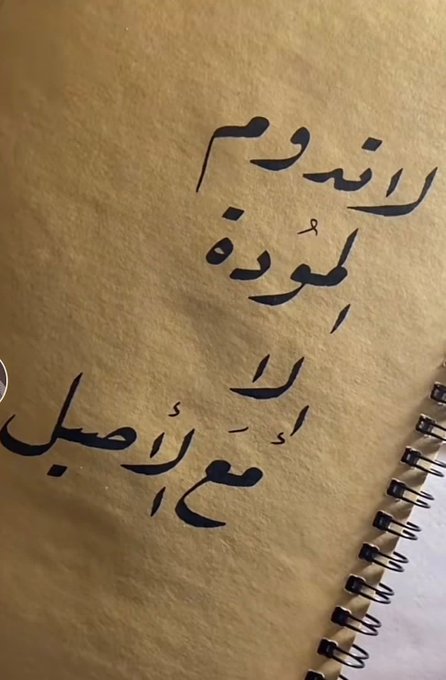 لا تدوم
المُودة
إلا
مَع الأصيل